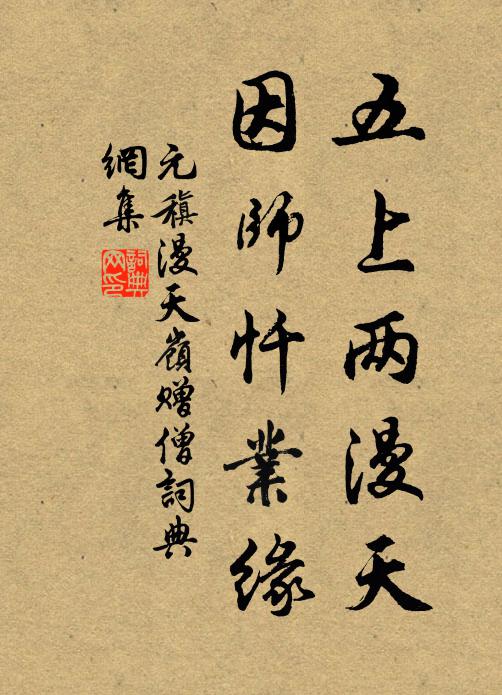 五上两漫天
因師忏業緣
元稹漫天嶺贈僧詞典
網集
詞典
网印